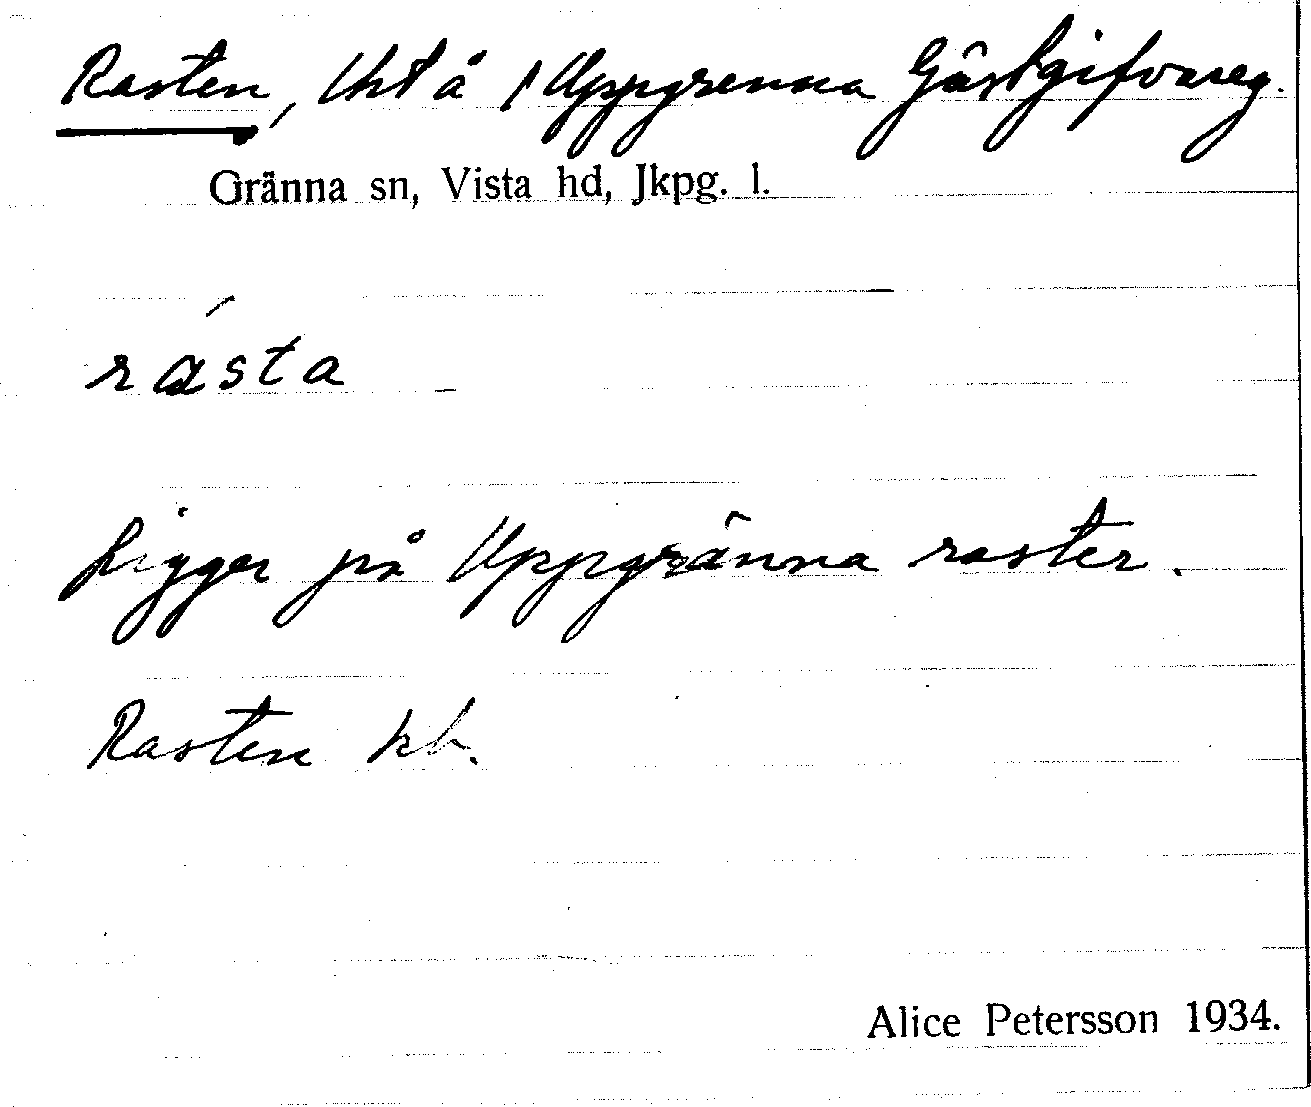 Rasten, Uht å 1 Uppgrenna Gästgifvareg.
Gränna sn, Vista hd, Jkpg. l.
rásta
Ligger på Uppgränna raster.
Rasten kb.
Alice Petersson 1934.